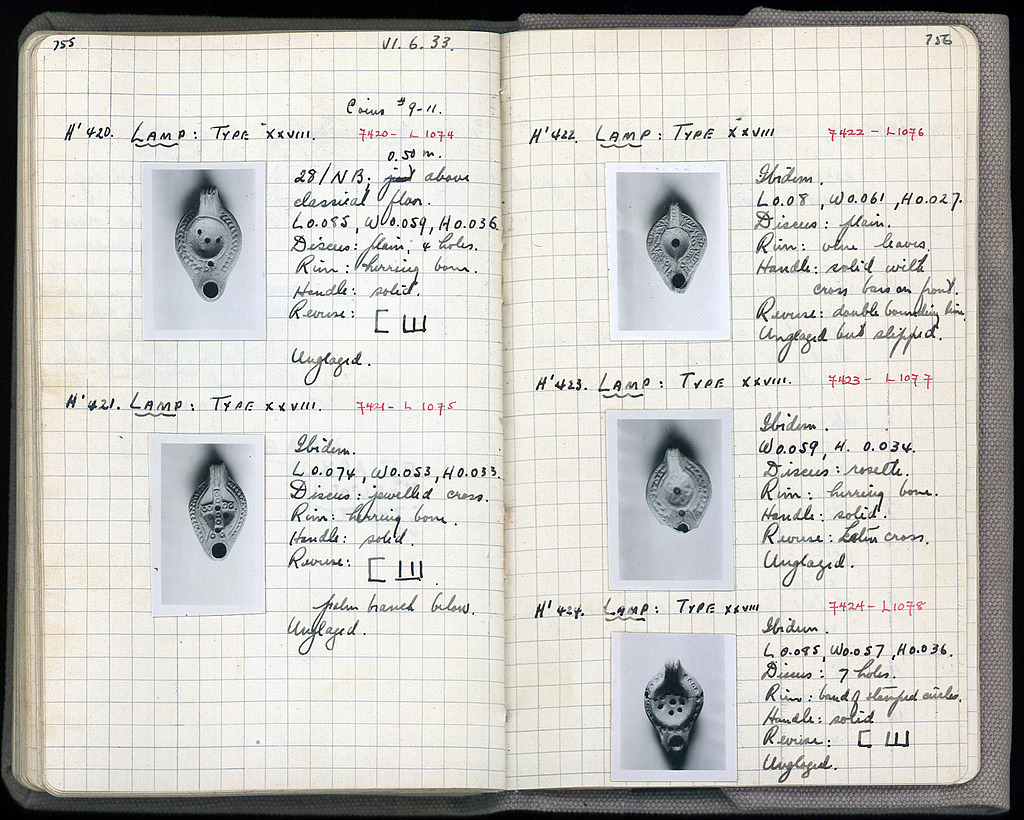 755
VI. 6. 33.
Coins #9-11.
H' 420. LAMP: TYPE XXVIII. 7420 - L 1074
0.50 m.
28/NB; just above
classical floor.
L 0.085, W 0.059, H 0.036
Discus: plain; 4 holes.
Rim: herring bone.
Handle: solid.
Reverse: [ Ш
Unglazed.
H' 421. LAMP: TYPE XXVIII. 7421 - L 1075
Ibidem.
L 0.074, W 0.053, H 0.033
Discus: jewelled cross.
Rim: herring bone.
Handle: solid.
Reverse: [ Ш
palm branch below.
Unglazed.
756
H' 422. LAMP: TYPE XXVIII 7422 - L 1076
Ibidem.
L 0.08, W 0.061, H 0.027.
Discus: plain.
Rim: vine leaves.
Handle: solid with
cross bars on front.
Reverse: double bounding line.
Unglazed but slipped.
H' 423. LAMP: TYPE XXVIII. 7423 - L 1077
Ibidem.
W 0.059, H. 0.034.
Discus: rosette.
Rim: herring bone.
Handle: solid.
Reverse: Latin cross.
Unglazed.
H' 424. LAMP: TYPE XXVIII 7424 - L 1078
Ibidem.
L 0.085, W 0.057, H 0.036.
Discus: 7 holes.
Rim: band of stamped circles.
Handle: solid
Reverse: [ Ш
Unglazed.